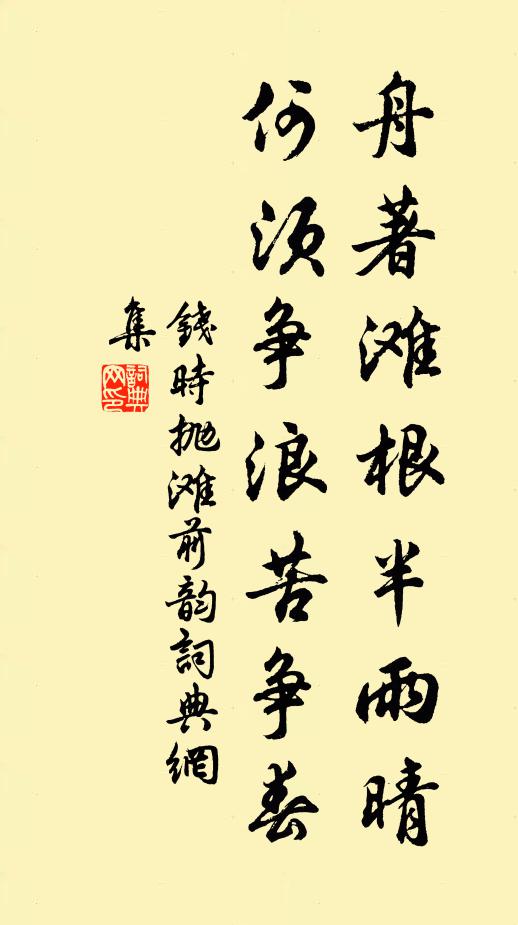 舟著滩根半雨晴
何须争浪苦争春
錢時抛滩前韵詞典網
集
詞典網印